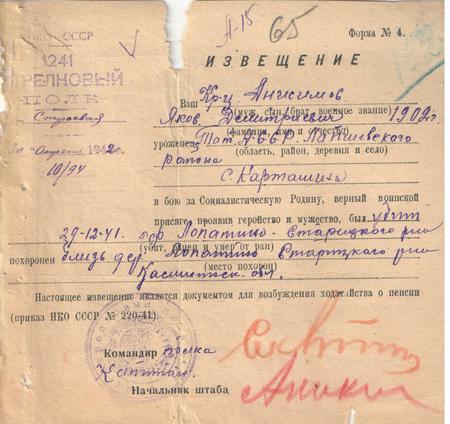 А-15
65
Форма № 4.
НКО СССР
1241
СТРЕЛКОВЫЙ
ПОЛК
Строевая
апреля 1942 г.
10/94
ИЗВЕЩЕНИЕ
Ваш Кр-ц Анисимов
(муж, сын, брат, военное звание)
Яков Дмитриевич 1902 г.
(фамилия, имя и отчество)
уроженец Тат. АССР. Лаишевского
(область, район, деревня и село)
района
с. Карташиха
в бою за Социалистическую Родину, верный воинской
присяге проявив геройство и мужество, был убит
29-12-41. Лопатино Старицкого р-на
(убит, ранен и умер от ран)
похоронен близь дер. Лопатино Старицкого р-на
(место похорон)
обл.
Настоящее извещение является документом для возбуждения ходатайства о пенсии
(приказ НКО СССР № 220-41).
Командир полка
Капитан
Начальник штаба